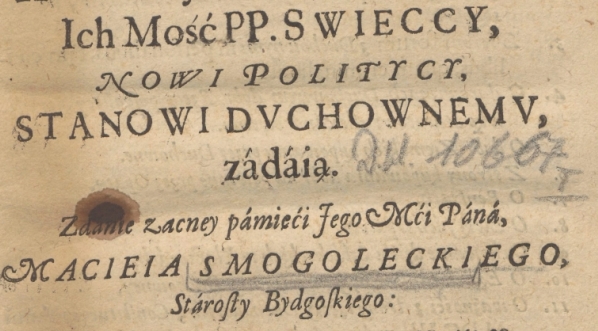 Ich Mość PP. SWIECCY,
NOWI POLITYCY,
STANOWI DVCHOWNEMV,
zádáią.
DU 10667
I
Zdanie zacney pámięći Jego Mći Páná,
MACIEIA SMOGOLECKIEGO,
Stárosty Bydgoskiego: